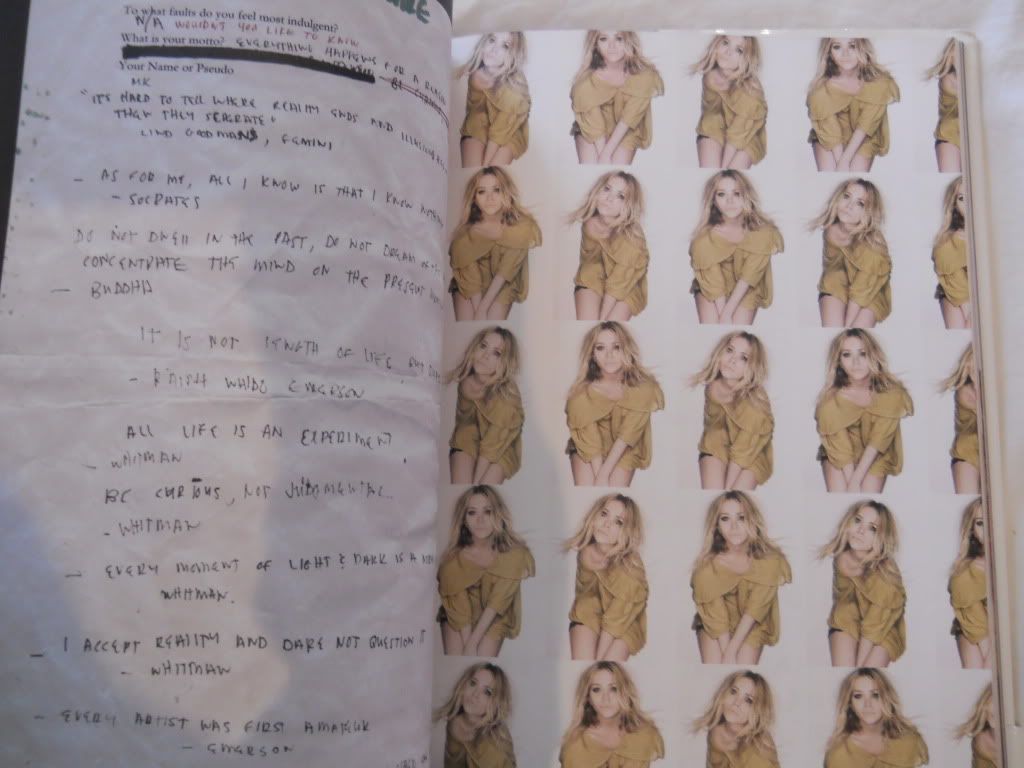 To what faults do you feel most indulgent?
N/A WOULDN'T YOU LIKE TO KNOW
What is your motto? EVERYTHING HAPPENS FOR A REASON
Your Name or Pseudo
MK
"IT'S HARD TO TELL WHERE REALITY ENDS AND ILLUSION
THEN THEY SEPERATE"
GOODMANS, GEMINI
- AS FOR ME, ALL I KNOW IS THAT I KNOW
- SOCRATES
DO NOT DWELL IN THE PAST, DO NOT DREAM OF
CONCENTRATE THE MIND ON THE PRESENT
- BUDDHA
IT IS NOT LENGTH OF LIFE, BUT
- RALPH WALDO EMERSON
ALL LIFE IS AN EXPERIMENT.
- WHITMAN
BE CURIOUS, NOT JUDGMENTAL.
- WHITMAN
- EVERY MOMENT OF LIGHT & DARK IS A
WHITMAN.
- I ACCEPT REALITY AND DARE NOT QUESTION IT
- WHITMAN
- EVERY ARTIST WAS FIRST AMATEUR
- EMERSON